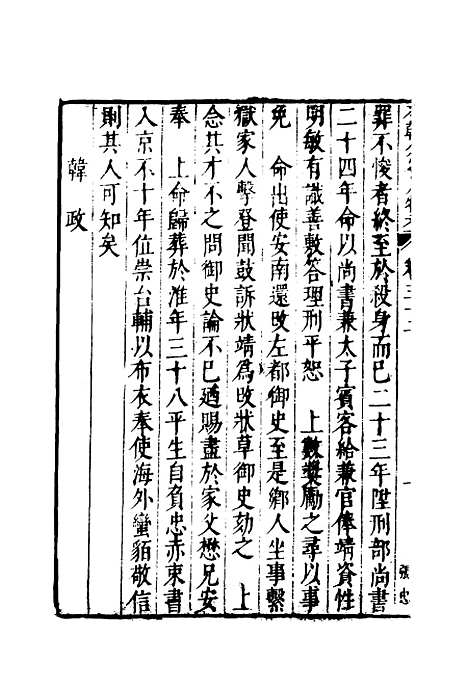 罪不悛者終至於殺身而已二十三年陞刑部尚書
二十四年命以尚書兼太子賓客給兼官俸靖資性
明敏有識善敷答理刑平恕　上數獎勵之尋以事
免　命出使安南還改左都御史至是鄉人坐事繫
獄家人擊登聞鼓訴狀靖為改狀草御史劾之　上
念其才不之問御史論不已廼賜盡於家父懋兄安
奉　上命歸葬於淮年三十八平生自負忠赤束書
入京不十年位崇台輔以布衣奉使海外蠻貊敬信
則其人可知矣
韓政